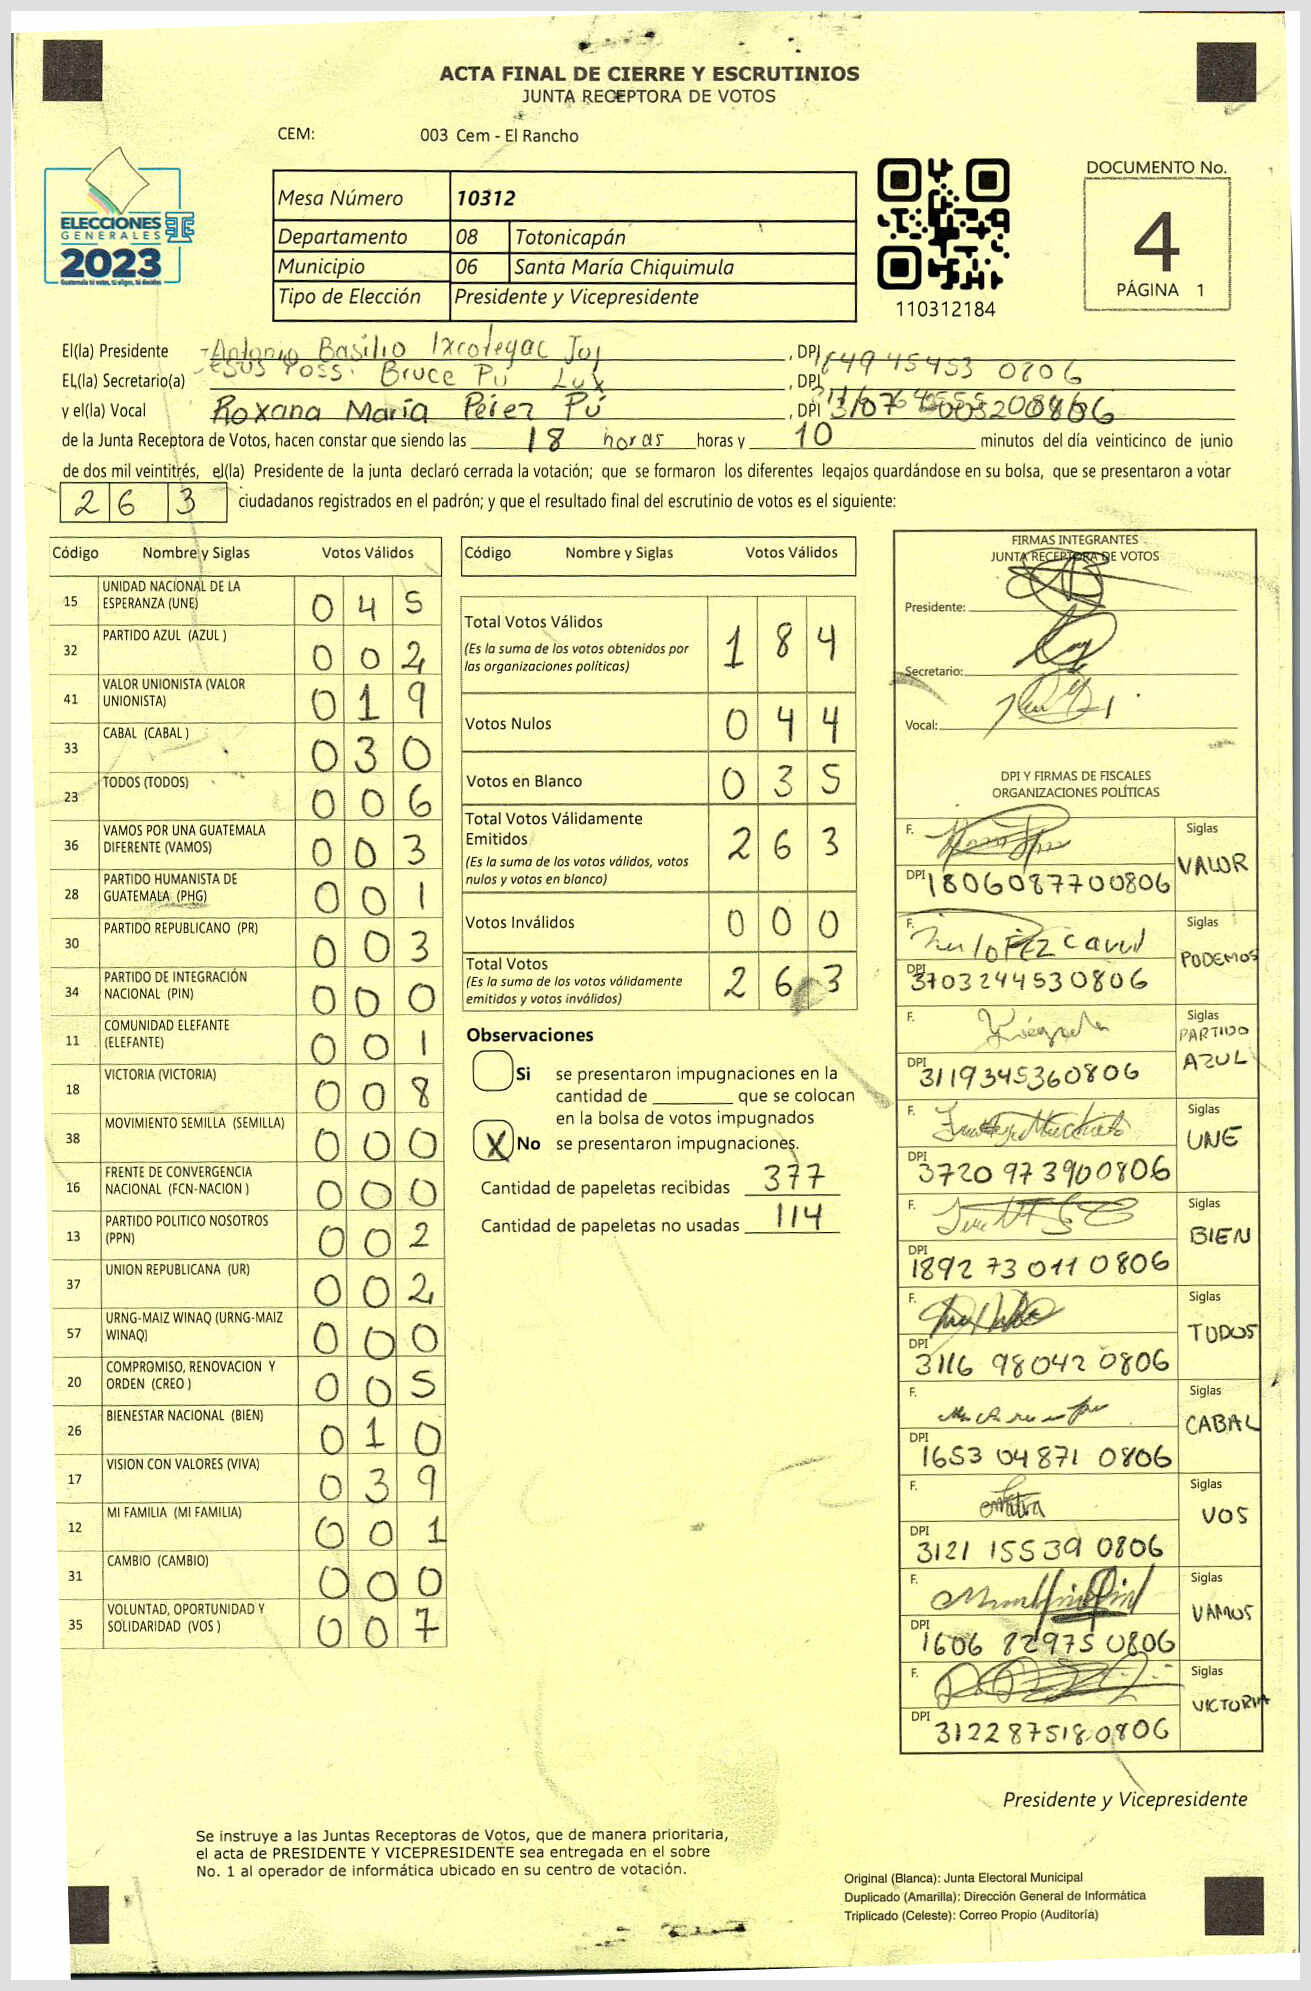 ACTA FINAL DE CIERRE Y ESCRUTINIOS
JUNTA RECEPTORA DE VOTOS
CEM: 003 Cem - El Rancho
ELECCIONES
GENERALES
TSE
2023
Guatemala tú votas, tú eliges, tú decides
Mesa Número 10312
Departamento 08 Totonicapán
Municipio 06 Santa María Chiquimula
Tipo de Elección Presidente y Vicepresidente
110312184
DOCUMENTO No.
4
PÁGINA 1
El(la) Presidente Antonio Basilio Ixcoteyac Joj , DPI 1849 45453 0806
EL(la) Secretario(a) Bruce Pú Lux , DPI
y el(la) Vocal Roxana María Pérez Pú , DPI 3107
de la Junta Receptora de Votos, hacen constar que siendo las 18 horas horas y 10 minutos del día veinticinco de junio
de dos mil veintitrés, el(la) Presidente de la junta declaró cerrada la votación; que se formaron los diferentes legajos guardándose en su bolsa, que se presentaron a votar
263 ciudadanos registrados en el padrón; y que el resultado final del escrutinio de votos es el siguiente:
Código Nombre y Siglas Votos Válidos
15 UNIDAD NACIONAL DE LA ESPERANZA (UNE) 045
32 PARTIDO AZUL (AZUL ) 002
41 VALOR UNIONISTA (VALOR UNIONISTA) 019
33 CABAL (CABAL ) 030
23 TODOS (TODOS) 006
36 VAMOS POR UNA GUATEMALA DIFERENTE (VAMOS) 003
28 PARTIDO HUMANISTA DE GUATEMALA (PHG) 001
30 PARTIDO REPUBLICANO (PR) 003
34 PARTIDO DE INTEGRACIÓN NACIONAL (PIN) 000
11 COMUNIDAD ELEFANTE (ELEFANTE) 001
18 VICTORIA (VICTORIA) 008
38 MOVIMIENTO SEMILLA (SEMILLA) 000
16 FRENTE DE CONVERGENCIA NACIONAL (FCN-NACION ) 000
13 PARTIDO POLITICO NOSOTROS (PPN) 002
37 UNION REPUBLICANA (UR) 002
57 URNG-MAIZ WINAQ (URNG-MAIZ WINAQ) 000
20 COMPROMISO, RENOVACION Y ORDEN (CREO ) 005
26 BIENESTAR NACIONAL (BIEN) 010
17 VISION CON VALORES (VIVA) 039
12 MI FAMILIA (MI FAMILIA) 001
31 CAMBIO (CAMBIO) 000
35 VOLUNTAD, OPORTUNIDAD Y SOLIDARIDAD (VOS ) 007
Código Nombre y Siglas Votos Válidos
Total Votos Válidos 184
(Es la suma de los votos obtenidos por
las organizaciones políticas)
Votos Nulos 044
Votos en Blanco 035
Total Votos Válidamente
Emitidos 263
(Es la suma de los votos válidos, votos
nulos y votos en blanco)
Votos Inválidos 000
Total Votos 263
(Es la suma de los votos válidamente
emitidos y votos inválidos)
Observaciones
Si se presentaron impugnaciones en la
cantidad de ________ que se colocan
en la bolsa de votos impugnados
X No se presentaron impugnaciones.
Cantidad de papeletas recibidas 377
Cantidad de papeletas no usadas 114
FIRMAS INTEGRANTES
JUNTA RECEPTORA DE VOTOS
Presidente:
Secretario:
Vocal:
DPI Y FIRMAS DE FISCALES
ORGANIZACIONES POLÍTICAS
F. Siglas
DPI 1806087700806 VALOR
F. Siglas
DPI 3703244530806 PODEMOS
F. Siglas
DPI 3119345360806 PARTIDO AZUL
F. Siglas
DPI 3720 973900806 UNE
F. Siglas
DPI 1892 73 011 0806 BIEN
F. Siglas
DPI 3116 98042 0806 TODOS
F. Siglas
DPI 1653 04871 0806 CABAL
F. Siglas
DPI 3121 15539 0806 VOS
F. Siglas
DPI 1606 82975 0806 VAMOS
F. Siglas
DPI 3122875180806 VICTORIA
Presidente y Vicepresidente
Se instruye a las Juntas Receptoras de Votos, que de manera prioritaria,
el acta de PRESIDENTE Y VICEPRESIDENTE sea entregada en el sobre
No. 1 al operador de informática ubicado en su centro de votación.
Original (Blanca): Junta Electoral Municipal
Duplicado (Amarilla): Dirección General de Informática
Triplicado (Celeste): Correo Propio (Auditoría)